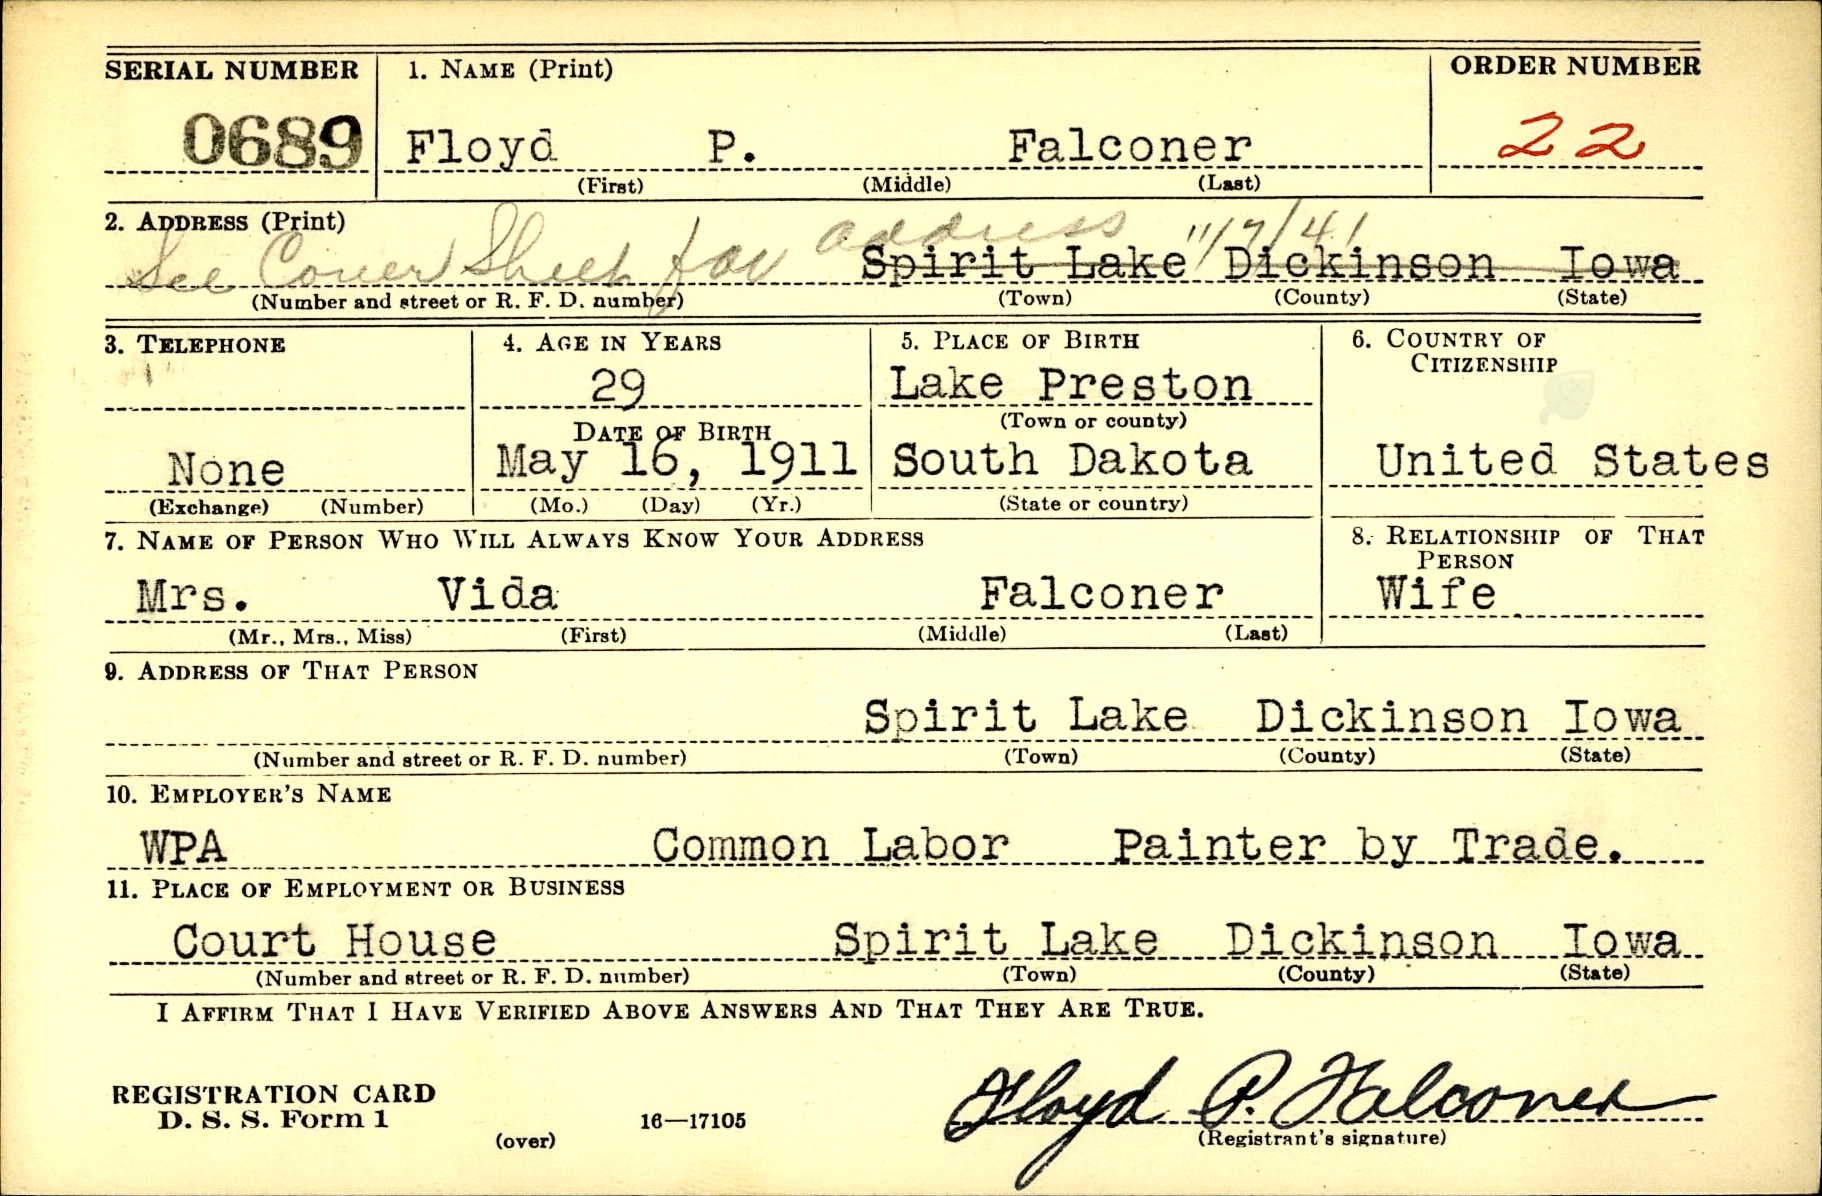 SERIAL NUMBER 1. NAME (Print) ORDER NUMBER
0689 Floyd P. Falconer 22
(First) (Middle) (Last)
2. ADDRESS (Print)
See Cover Sheet for address 11/7/41
Spirit Lake Dickinson Iowa
(Number and street or R. F. D. number) (Town) (County) (State)
3. TELEPHONE 4. AGE IN YEARS 5. PLACE OF BIRTH 6. COUNTRY OF
CITIZENSHIP
29 Lake Preston
(Town or county)
DATE OF BIRTH
None May 16, 1911 South Dakota United States
(Exchange) (Number) (Mo.) (Day) (Yr.) (State or country)
7. NAME OF PERSON WHO WILL ALWAYS KNOW YOUR ADDRESS 8. RELATIONSHIP OF THAT
PERSON
Mrs. Vida Falconer Wife
(Mr., Mrs., Miss) (First) (Middle) (Last)
9. ADDRESS OF THAT PERSON
Spirit Lake Dickinson Iowa
(Number and street or R. F. D. number) (Town) (County) (State)
10. EMPLOYER'S NAME
WPA Common Labor Painter by Trade.
11. PLACE OF EMPLOYMENT OR BUSINESS
Court House Spirit Lake Dickinson Iowa
(Number and street or R. F. D. number) (Town) (County) (State)
I AFFIRM THAT I HAVE VERIFIED ABOVE ANSWERS AND THAT THEY ARE TRUE.
REGISTRATION CARD
D. S. S. Form 1 16—17105 Floyd P. Falconer
(over) (Registrant's signature)